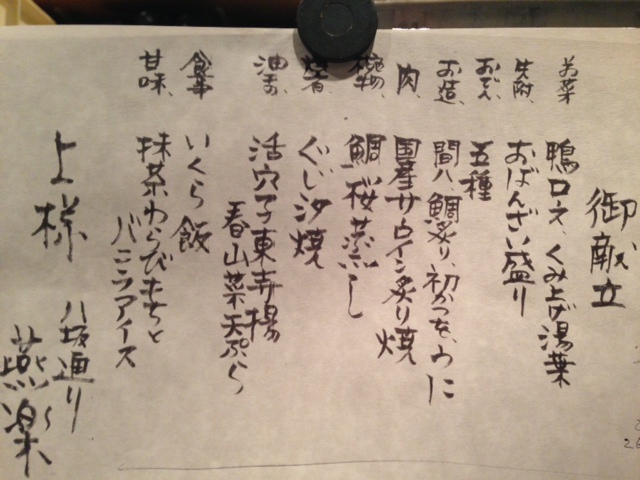 御献立
前菜 鴨ロース、くみ上げ湯葉
先附、おばんざい盛り
おでん、五種
お造、間八、鯛炙り、初かつを、うに
肉、国産サーロイン炙り焼
椀物、鯛桜蒸し
焼肴、ぐじ汐焼
油もの、活穴子東寺揚
春山菜天ぷら
食事 いくら飯
甘味、抹茶わらびもちと
バニラアイス
上様
八坂通り
燕楽